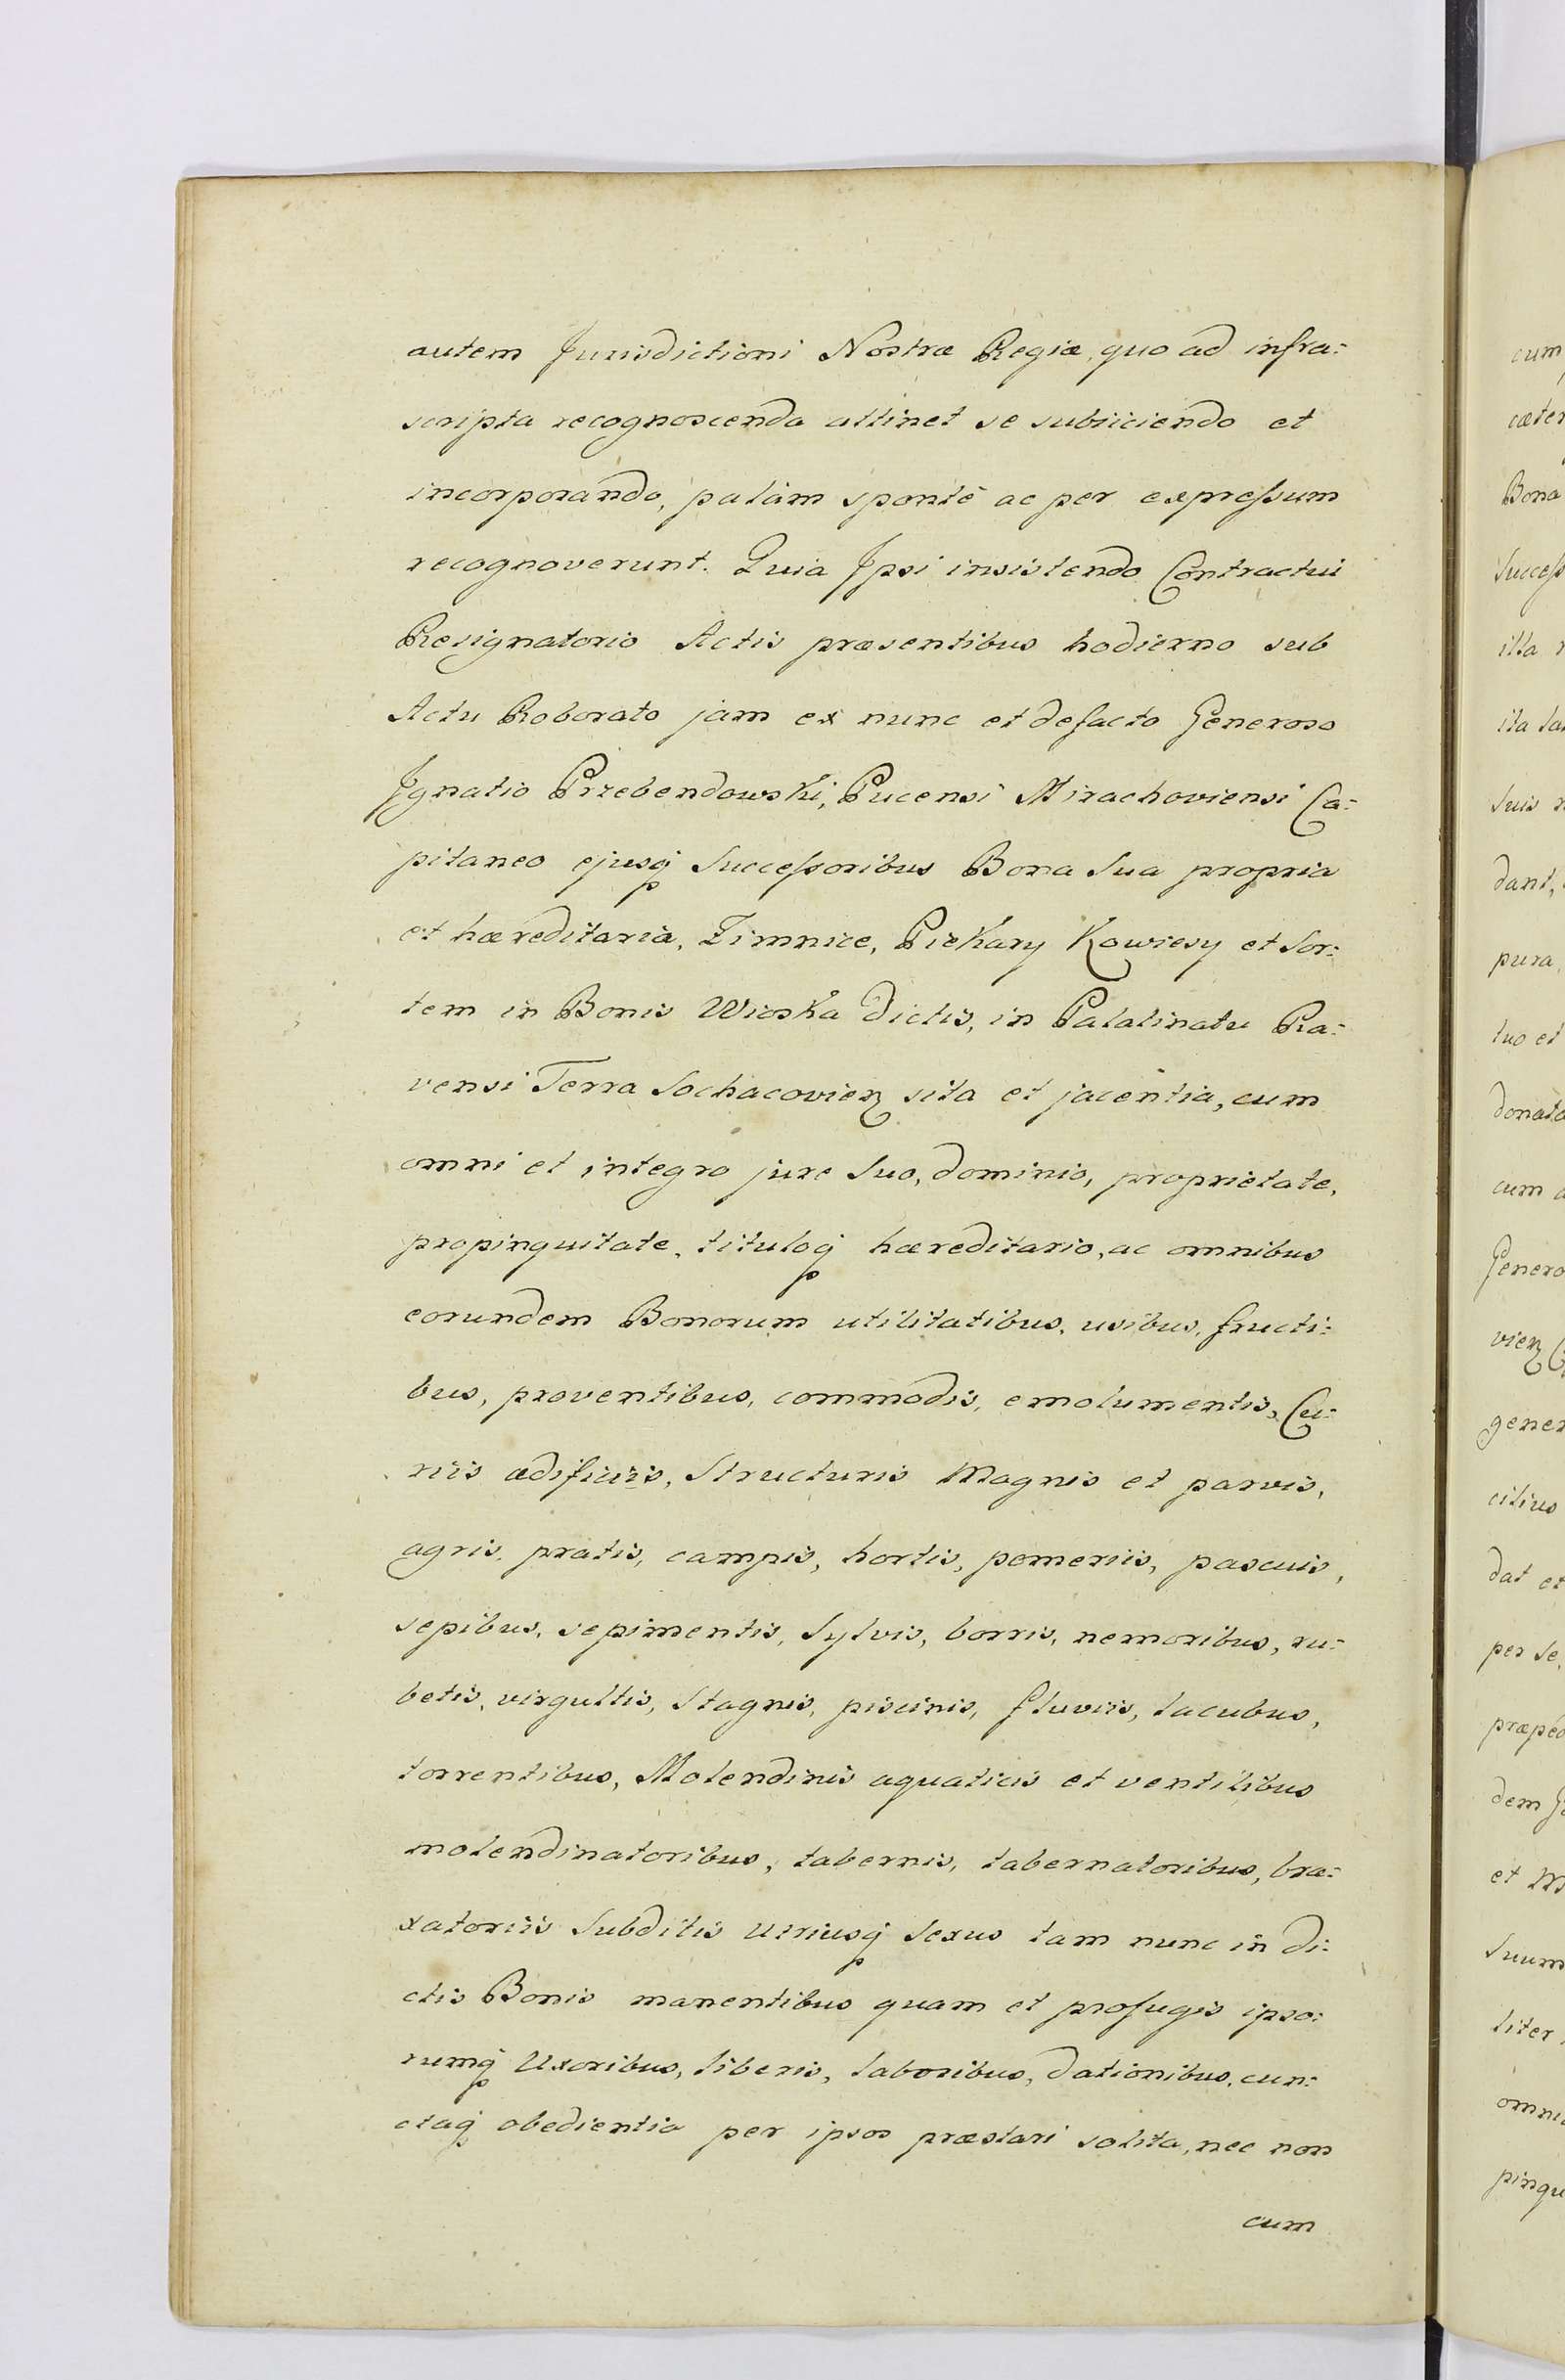 autem Jurisdictioni Nostræ Regiæ, quo ad infra:
scripta recognoscenda attinet se subiiciendo et
incorporando, palàm spontè ac per expressum
recognoverunt. Quia Jpsi insistendo Contractui
Resignatorio Actis præsentibus hodierno sub
Actu Roborato jam ex nunc et defacto Generoso
Jgnatio Przebendowski, Pucensi Mirachoviensi Ca:
pitaneo ejusq; Successoribus Bona Sua propria
et hæreditaria, Zimnice, Piekary Kowiesy et Sor:
tem in Bonis Wioska dictis, in Palatinatu Ra:
vensi Terra Sochacovien sita et jacentia, cum
omni et integro jure Suo, dominio, proprietate,
propinquitate, tituloq; hæreditario, ac omnibus
eorundem Bonorum utilitatibus, usibus, fructi:
bus, proventibus, commodis, emolumentis, Cu:
riis ædificiis, Structuris Magnis et parvis,
agris, pratis, campis, hortis, pomeriis, pascuis,
sepibus, sepimentis, Sylvis, borris, nemoribus, ru:
betis, virgultis, Stagnis, piscinis, fluviis, lacubus,
torrentibus, Molendinis aquaticis et ventilibus
molendinatoribus, tabernis, tabernatoribus, bra:
xatoriis Subditis utriusq; Sexus tam nunc in di:
ctis Bonis manentibus quam et profugis ipso:
rumq; Uxoribus, liberis, laboribus, dationibus, cun:
ctaq; obedientia per ipsos præstari solita, nec non
cum
cum
cæter
Bona
Success
illa
ita ta
Suis
dant,
pura,
tuo et
donata
cum
Genero
vien
gener
citius
dat et
per Se,
præpéd
dem
et
Suum
liter
omni
pinqu